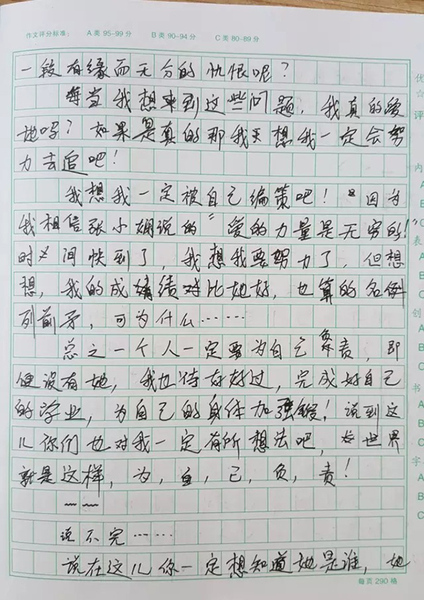 作文评分标准： A类95-99分 B类90-94分 C类80-89分
一段有缘而无分的忧恨呢？
每当我想来到这些问题，我真的爱
她吗？如果是真的那我天想我一定会努
力去追吧！
我想我一定被自己编策吧！“因为
我相信张小娴说的“爱的力量是无穷的！”
时间快到了，我想我要努力了，但想
想，我的成绩对比她好，也算的名例
列前矛，可为什么……
总之一个人一定要为自己负责，即
便没有她，我也待好好过，完成好自己
的学业，为自己的身体加强锻！说到这
儿你们也对我一定有所想法吧，世界
就是这样，为，自，己，负，责！
说不完……
说在这儿你一定想知道她是谁，她
每页290格
优
☆
评
内
A
B
C
表
A
B
C
创
A
B
C
书
A
B
C
字
A
B
C